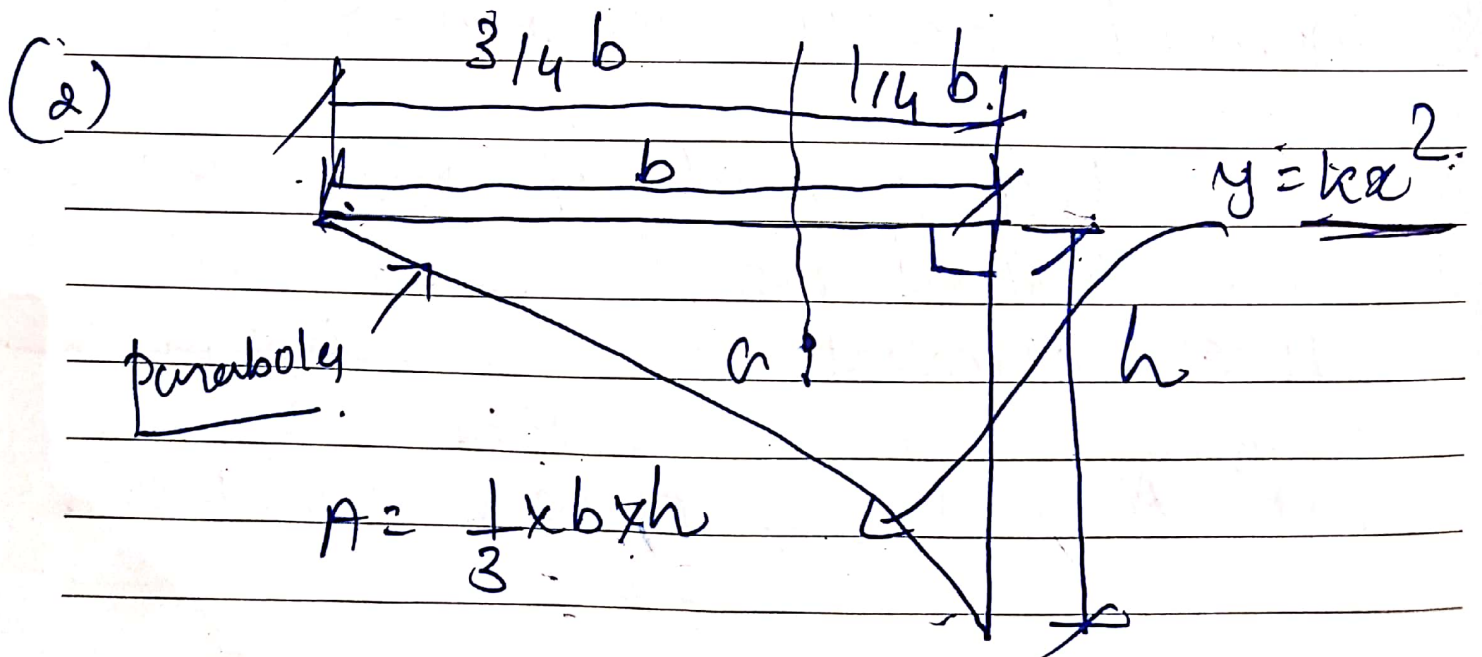 (2)
3/4 b 1/4 b.
b
y = kx².
parabola
G
h
A = 1/3 x b x h